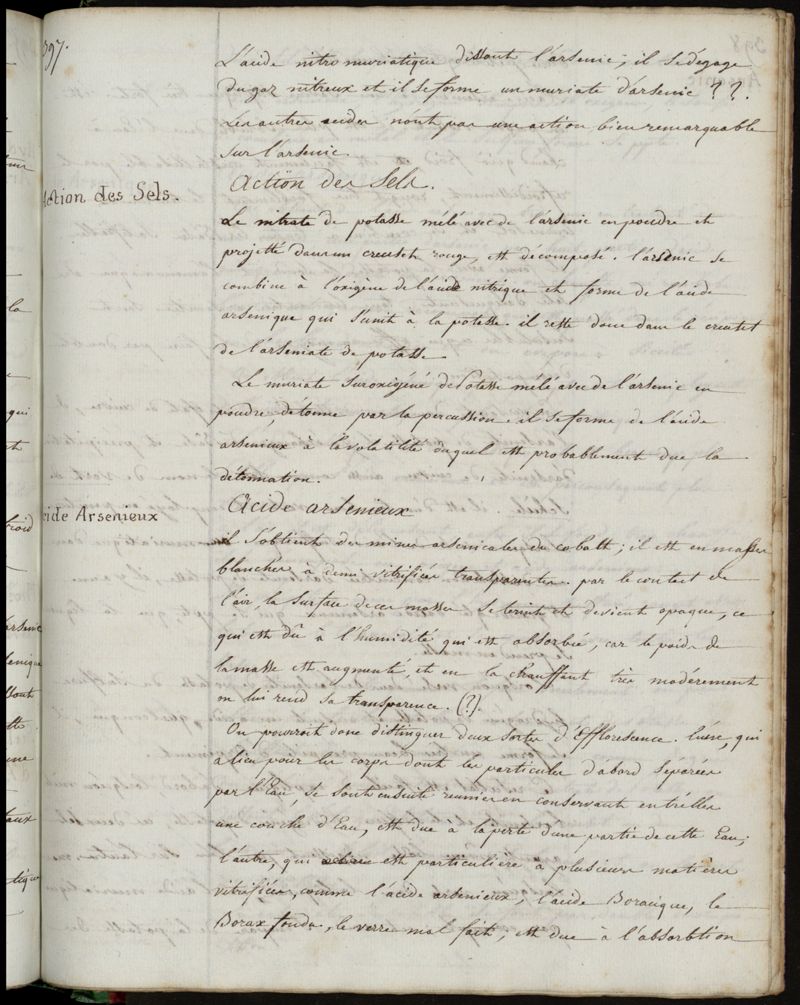 397.
L'acide nitro muriatique dissout l'arsenic; il se dégage
du gaz nitreux et il se forme un muriate d'arsenic ??.
Les autres acides n'ont pas une action bien remarquable
sur l'arsenic.
Action des Sels.
Action des Sels.
Le nitrate de potasse mêlé avec de l'arsenic en poudre et
projetté dans un creuset rouge, est décomposé. l'arsenic se
combine à l'oxigène de l'acide nitrique et forme de l'acide
arsenique qui s'unit à la potasse. il reste donc dans le creuset
de l'arseniate de potasse.
Le muriate suroxigéné de Potasse mêlé avec de l'arsenic en
poudre, détonne par la percussion. il se forme de l'acide
arsenieux à la volatilité duquel est probablement due la
détonnation.
Acide Arsenieux
Acide arsenieux
il s'obtient des mines arsenicales de cobalt; il est en masses
blanches à demi vitrifiées transparentes. par le contact de
l'air, la surface de ces masses se ternit et devient opaque, ce
qui est dû à l'humidité qui est absorbée, car le poids de
la masse est augmenté, et en la chauffant très modérement
on lui rend sa transparence. (?).
On pourroit donc distinguer deux sortes d'Efflorescence. l'une, qui
a lieu pour les corps dont les particules d'abord séparées
par l'Eau, se sont ensuite reunies en conservant entr'elles
une couche d'Eau, est due à la perte d'une partie de cette Eau;
l'autre, qui est particulière à plusieurs matières
vitrifiées, comme l'acide arsenieux, l'acide Boracique, le
Borax fondu, le verre mal fait, est due à l'absorbtion